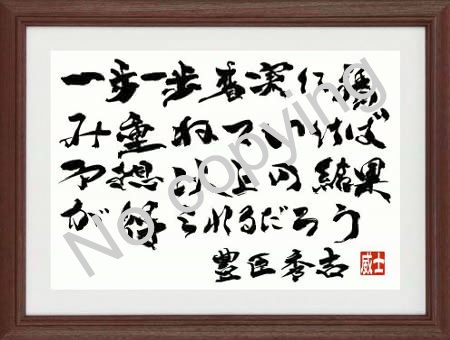 一歩一歩着実に積
み重ねていけば
予想以上の結果
が得られるだろう
豊臣秀吉
威士
No copying